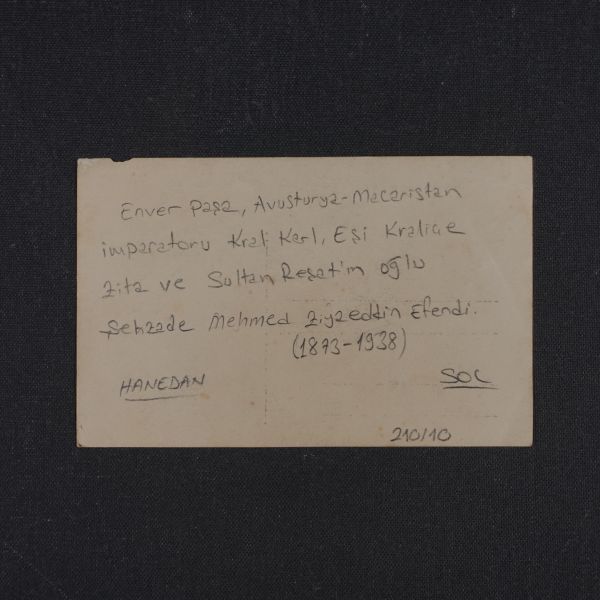 Enver Paşa, Avusturya-Macaristan
imparatoru Kral Karl, Eşi Kraliçe
Zita ve Sultan Reşat'ın oğlu
Şehzade Mehmed Ziyaeddin Efendi.
(1873-1938)
HANEDAN SOL
210/10